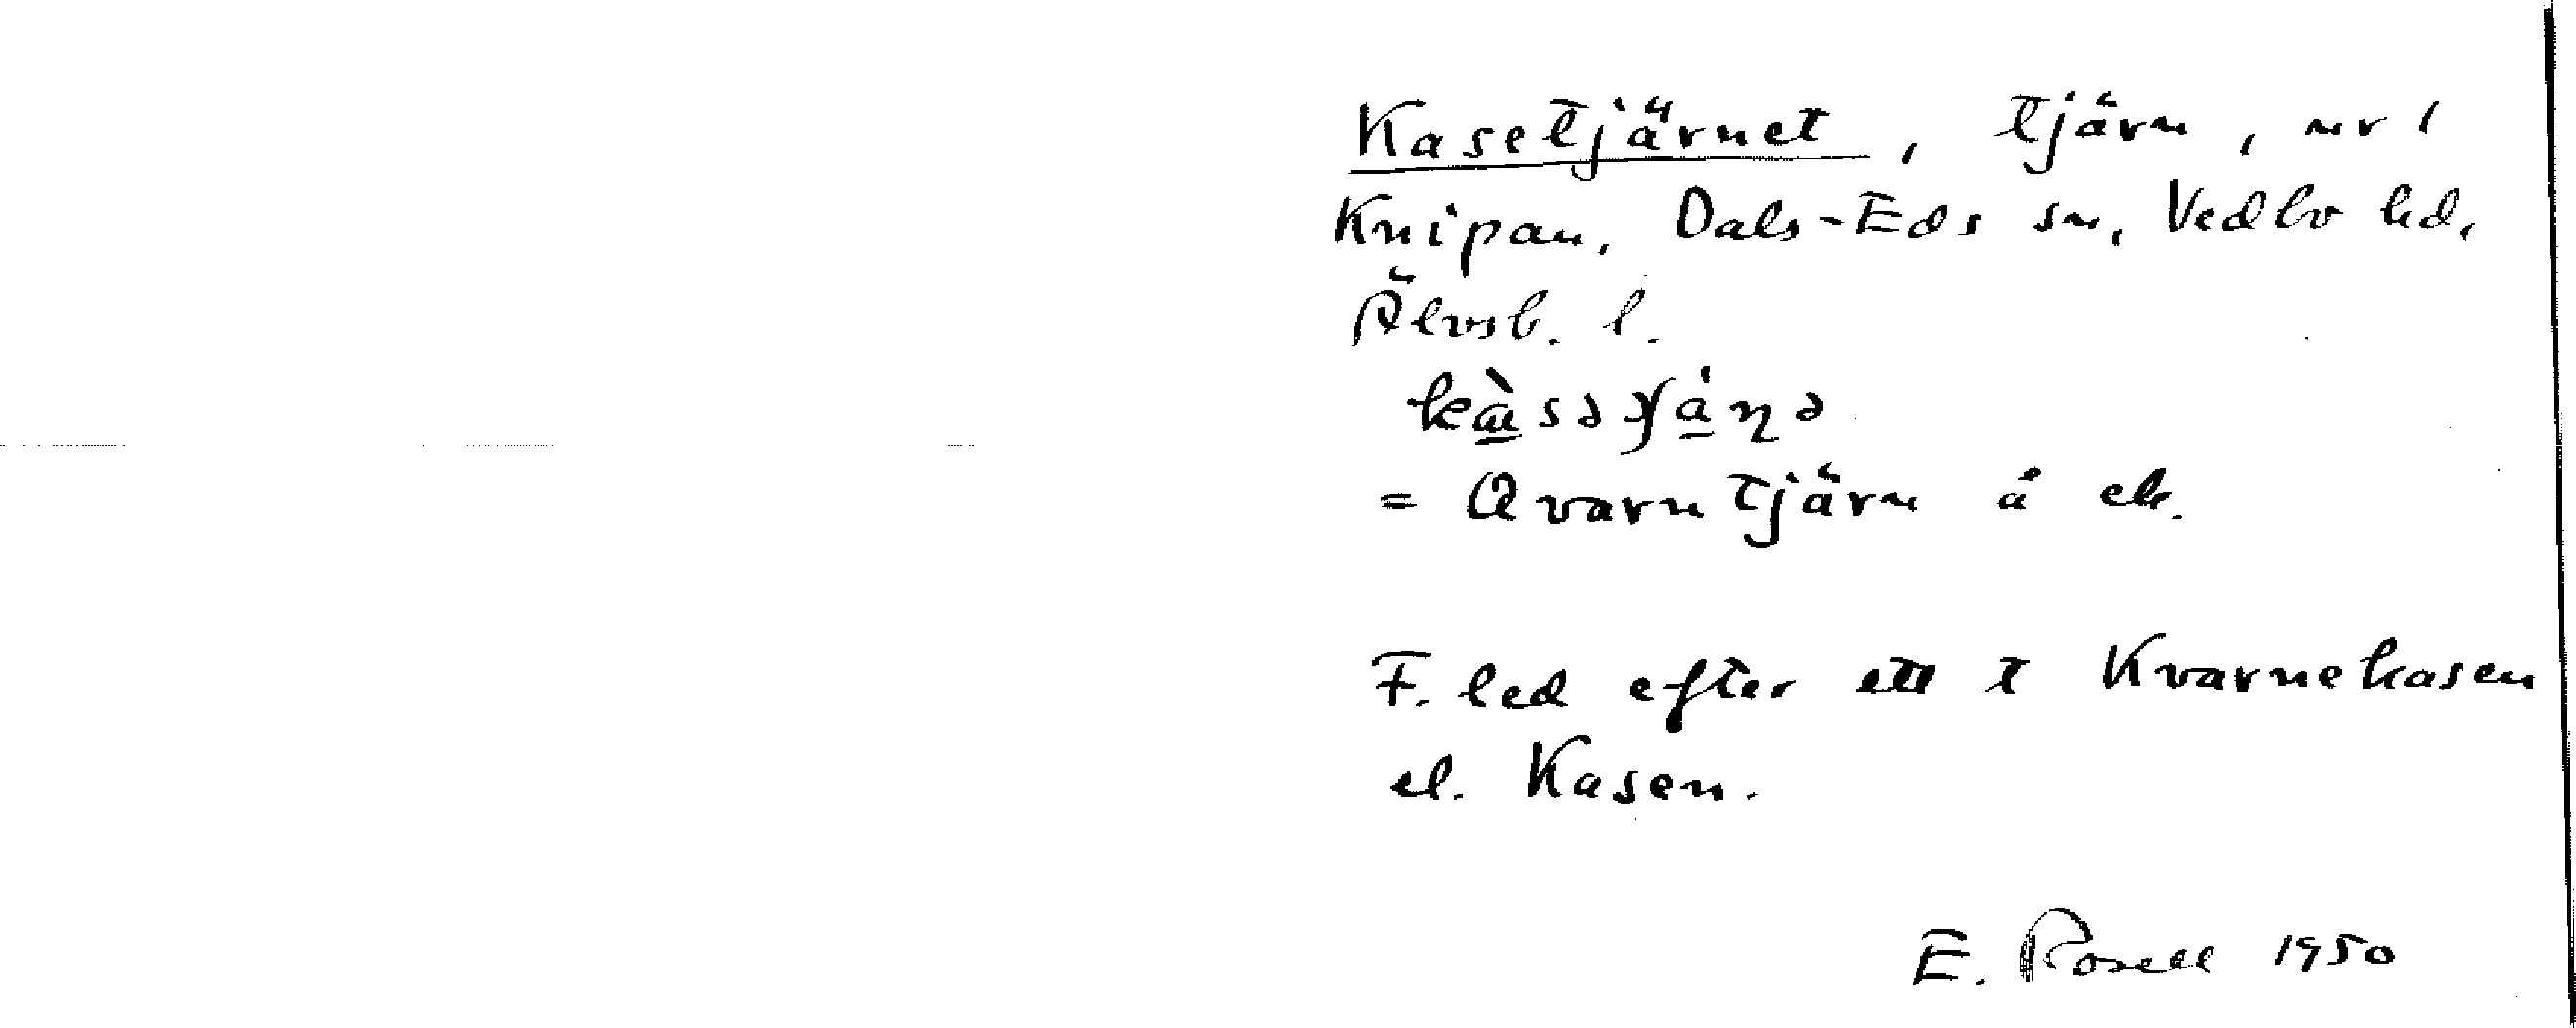 Kasetjärnet, tjärn, nr 1
Knipan, Dals-Eds sn, Vedbo hd,
Älvsb. l.
= Qvarntjärn å ek.
F. led efter ett t Kvarnekasen
el. Kasen.
E. Rosell 1950